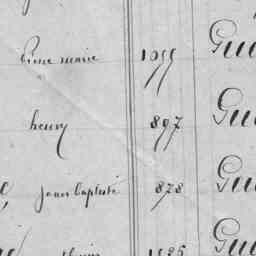 Pierre marie 1055 Gu
henry 897 Gu
jean baptiste 878 Gu
Gu